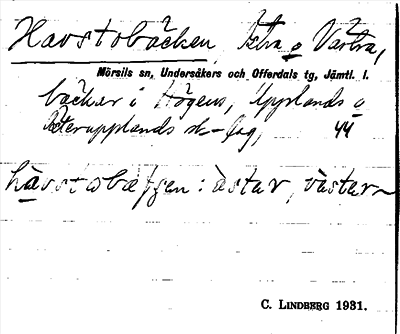 Havstobäcken, Östra o Västra,
Mörsils sn, Undersåkers och Offerdals tg, Jämtl. l.
bäckar i Högens, Upplands o
Österupplands sk-lag, 44
hàvstobæʃʃen : àstar, væstarn
C. LINDBERG 1931.